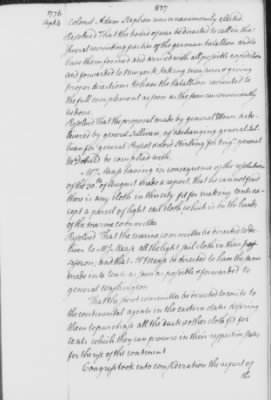 1776
Sept. 4
837
Colonel Adam Stephen was unanimously elected
Resolved That the board of war be directed to call in the
several recruiting parties of the german battalion and to
have them formed and armed with all possible expedition
and forwarded to new york taking measures & giving
proper directions to have the battalion recruited to
the full complement as soon as the same can conveniently
be done.
Resolved That the proposal made by general Howe as de-
livered by general Sullivan, of exchanging general Sul-
livan for general Prescot & lord Stirling for brigr. general
McDonald be complied with.
Mr. Mease having in consequence of the resolution
of the 30th of august made a report, that he cannot find
there is any cloth in this city fit for making tents ex-
cept a parcel of light sail cloth which is in the hands
of the marine committee
Resolved That the marine committee be directed to de-
liver to Mr. Mease all the light sail cloth in their
possession; and that Mr. Mease be directed to have the same
made into tents as soon as possible & forwarded to
general washington
That the secret committee be directed to write to
the continental agents in the eastern states desiring
them to purchase all the duck & other cloth fit for
tents which they can procure in their respective states
for the use of the continent
Congress took into consideration the report of
the